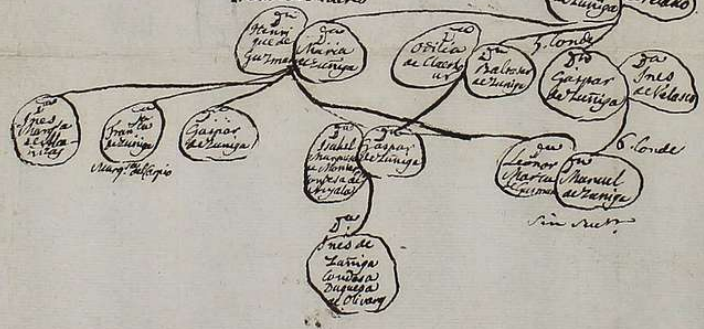 Dn
Henri
que de
Guzman
Da
Maria
de Zuñiga
Da
de
Dn
Baltasar
de Zuñiga
5. Conde
Dn
Gaspar
de Zuñiga
Da
Ines
de Velasco
de Zuñiga
Da
Ines
Da
Franca
de Zuñiga
Marqsa del Carpio
Gaspar
de Zuñiga
Da
Isabel
Marquesa
de Monter
Condesa de
Ayala
Gaspar
de Zuñiga
Da
Leonor
Maria
de Guzman
6. Conde
Dn
Manuel
de Zuñiga
Sin
Da
Ines de
Zuñiga
Condesa
Duquesa
de Olivares